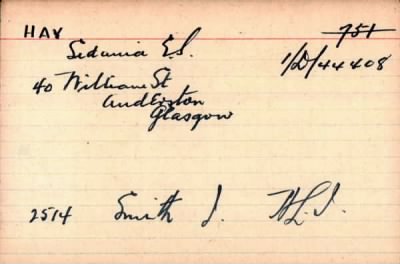 HAY 751
Sidonia E.S. 1/D/44408
40 William St
Anderston
Glasgow
2514 Smith J. H.L.I.